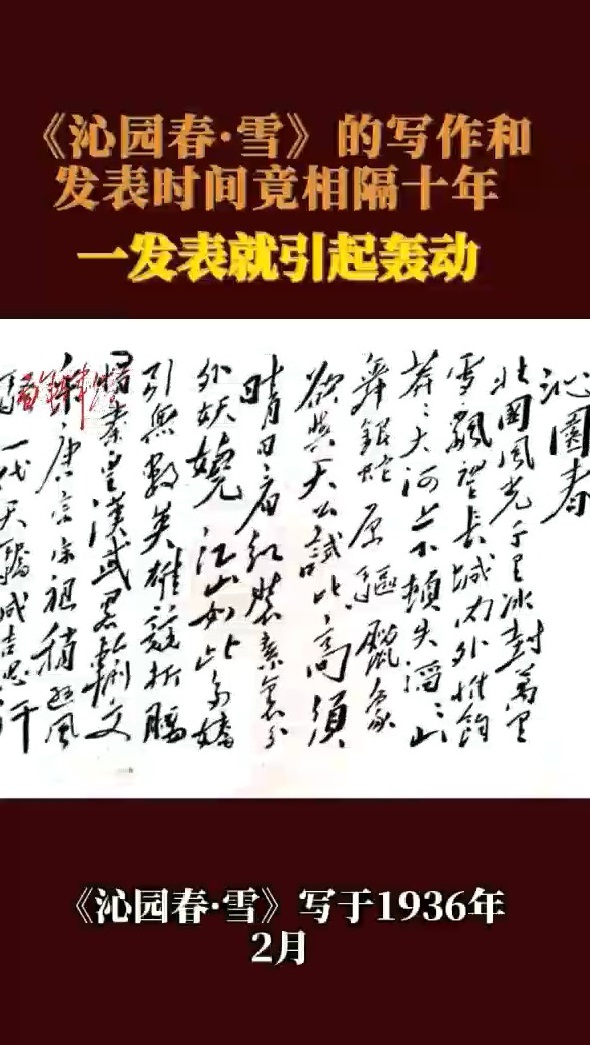 《沁园春·雪》的写作和
发表时间竟相隔十年
一发表就引起轰动
沁園春
北國風光千里冰封萬里
雪飄望長城內外惟餘
莽々大河上下頓失滔々山
舞銀蛇原驅臘象
欲與天公試比高須
晴日看紅裝素裹分
外妖嬈江山如此多嬌
引無數英雄競折腰
惜秦皇漢武畧輸文
采唐宗宋祖稍遜風
騷一代天驕成吉思汗
《沁园春·雪》写于1936年
2月